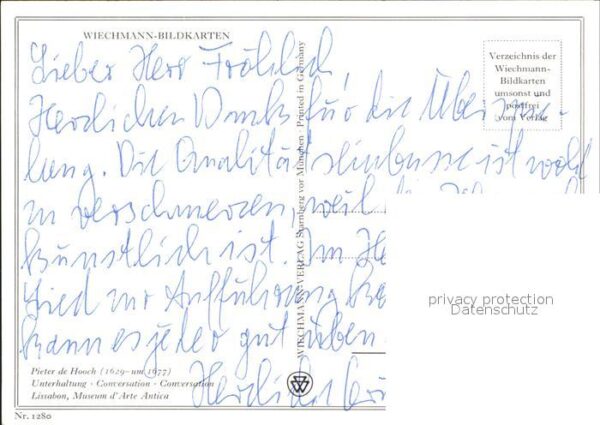 WIECHMANN-BILDKARTEN
Lieber Herr Fröhlich,
Herzlichen Dank für die Überspie-
lung. Die Qualitätseinbusse ist wohl
zu verschmerzen, weil
künstlich ist. Im
Lied zur Aufführung
kann es jeder gut üben.
Herzliche
Verzeichnis der
Wiechmann-
Bildkarten
umsonst und
postfrei
vom Verlag
WIECHMANN-VERLAG Starnberg vor München · Printed in Germany
privacy protection
Datenschutz
Pieter de Hooch (1629–um 1677)
Unterhaltung · Conversation · Conversation
Lissabon, Museum d'Arte Antica
Nr. 1280